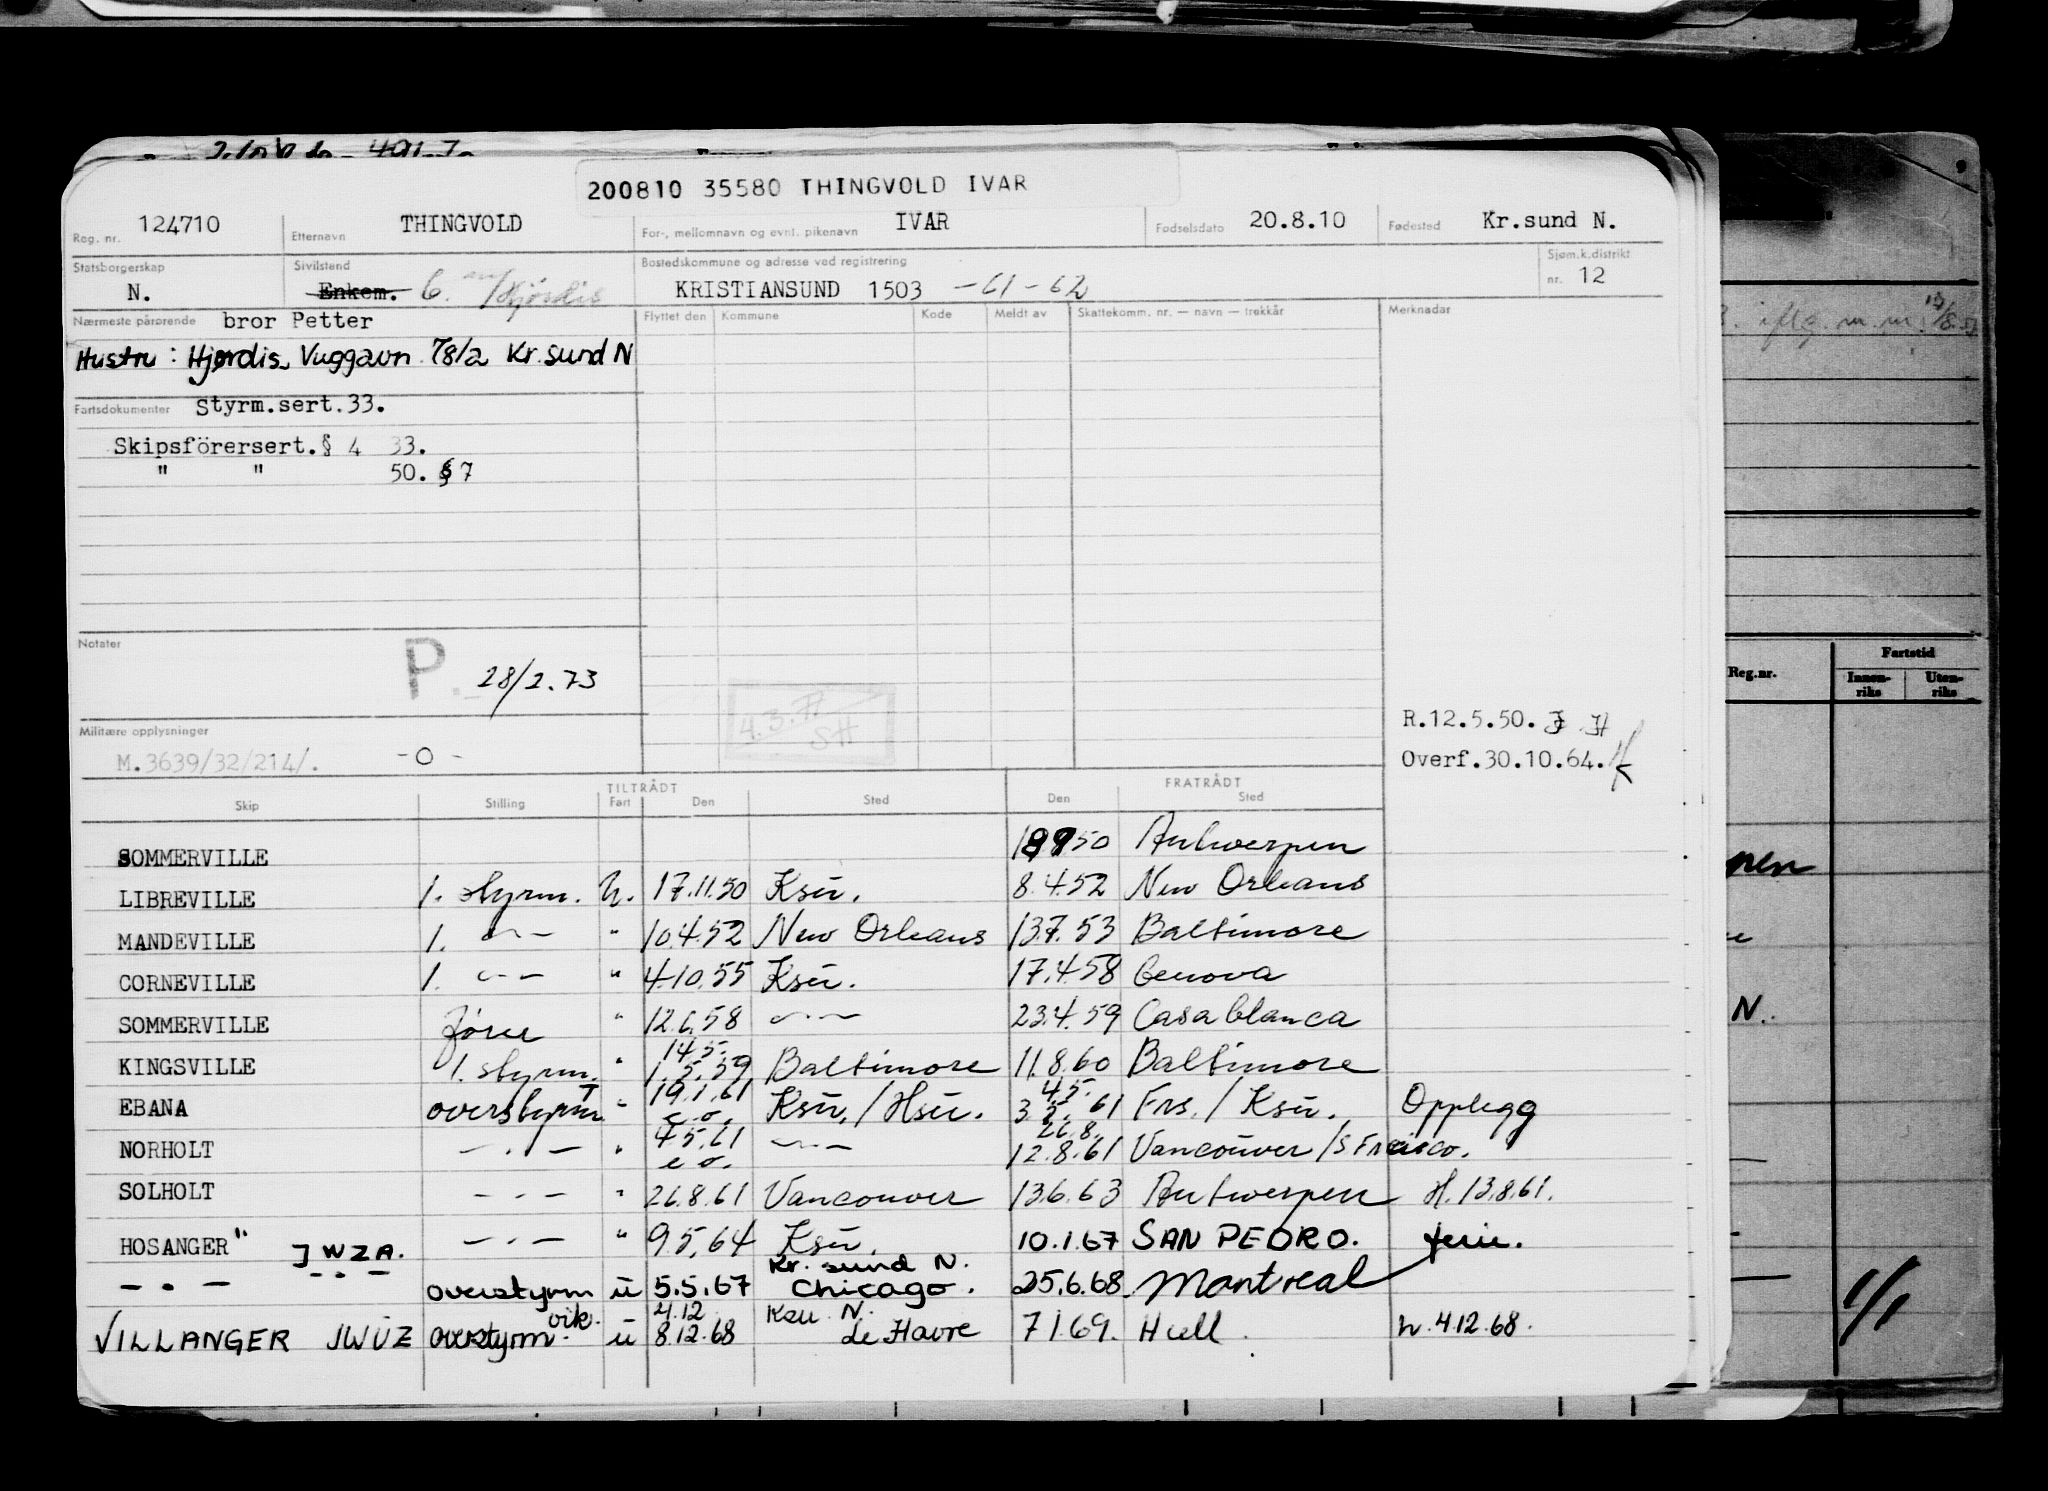 200810 35580 THINGVOLD IVAR
Reg. nr. 124710 Etternavn THINGVOLD For-, mellomnavn og evnt. pikenavn IVAR Fødselsdato 20.8.10 Fødested Kr.sund N.
Statsborgerskap N. Sivilstand Enkem. G. m/Hjørdis Bostedskommune og adresse ved registrering KRISTIANSUND 1503 -61-62 Sjøm.k.distrikt nr. 12
Nærmeste pårørende bror Petter Flyttet den Kommune Kode Meldt av Skattekomm. nr. — navn — trekkår Merknader
Hustru : Hjørdis, Vuggavn 78/2 Kr.sund N
Fartsdokumenter Styrm.sert.33.
Skipsförersert.§ 4 33.
" " 50. § 7
Notater P. 28/2.73
4.3.
SH
R.12.5.50.
Militære opplysninger
M.3639/32/214/. -0-
Overf.30.10.64.
TILTRÅDT FRATRÅDT
Skip Stilling Fart Den Sted Den Sted
SOMMERVILLE 50 Antwerpen
LIBREVILLE 1. styrm. U. 17.11.50 Ksu. 8.4.52 New Orleans
MANDEVILLE 1. -"- " 10.4.52 New Orleans 13.7.53 Baltimore
CORNEVILLE 1. -"- " 4.10.55 Ksu. 17.4.58 Genova
SOMMERVILLE fører " 12.6.58 -"- 23.4.59 Casablanca
KINGSVILLE 1. styrm. " 14.5. 1.5.59 Baltimore 11.8.60 Baltimore
EBANA overstyrm " 19.1.61 e.o. Ksu./Hsu. 4.5. 61 Fns./Ksu. Opplegg
NORHOLT -"- " 4.5.61 e o. -"- 26.8. 12.8.61 Vancouver/S Fracisco.
SOLHOLT -"- " 26.8.61 Vancouver 13.6.63 Antwerpen H. 13.8.61.
HOSANGER" JWZA. -"- " 9.5.64 Ksu. 10.1.67 SAN PEDRO. ferie.
-"- -"- overstyrm u 5.5.67 Kr. sund N. Chicago. 25.6.68. Montreal
VILLANGER JWUZ overstyrm vik. u 4.12 8.12.68 Ksu N. Le Havre 7.1.69. Hull. h. 4.12.68.
Reg.nr. Fartstid
Innen-riks Uten-riks
N.
1/1